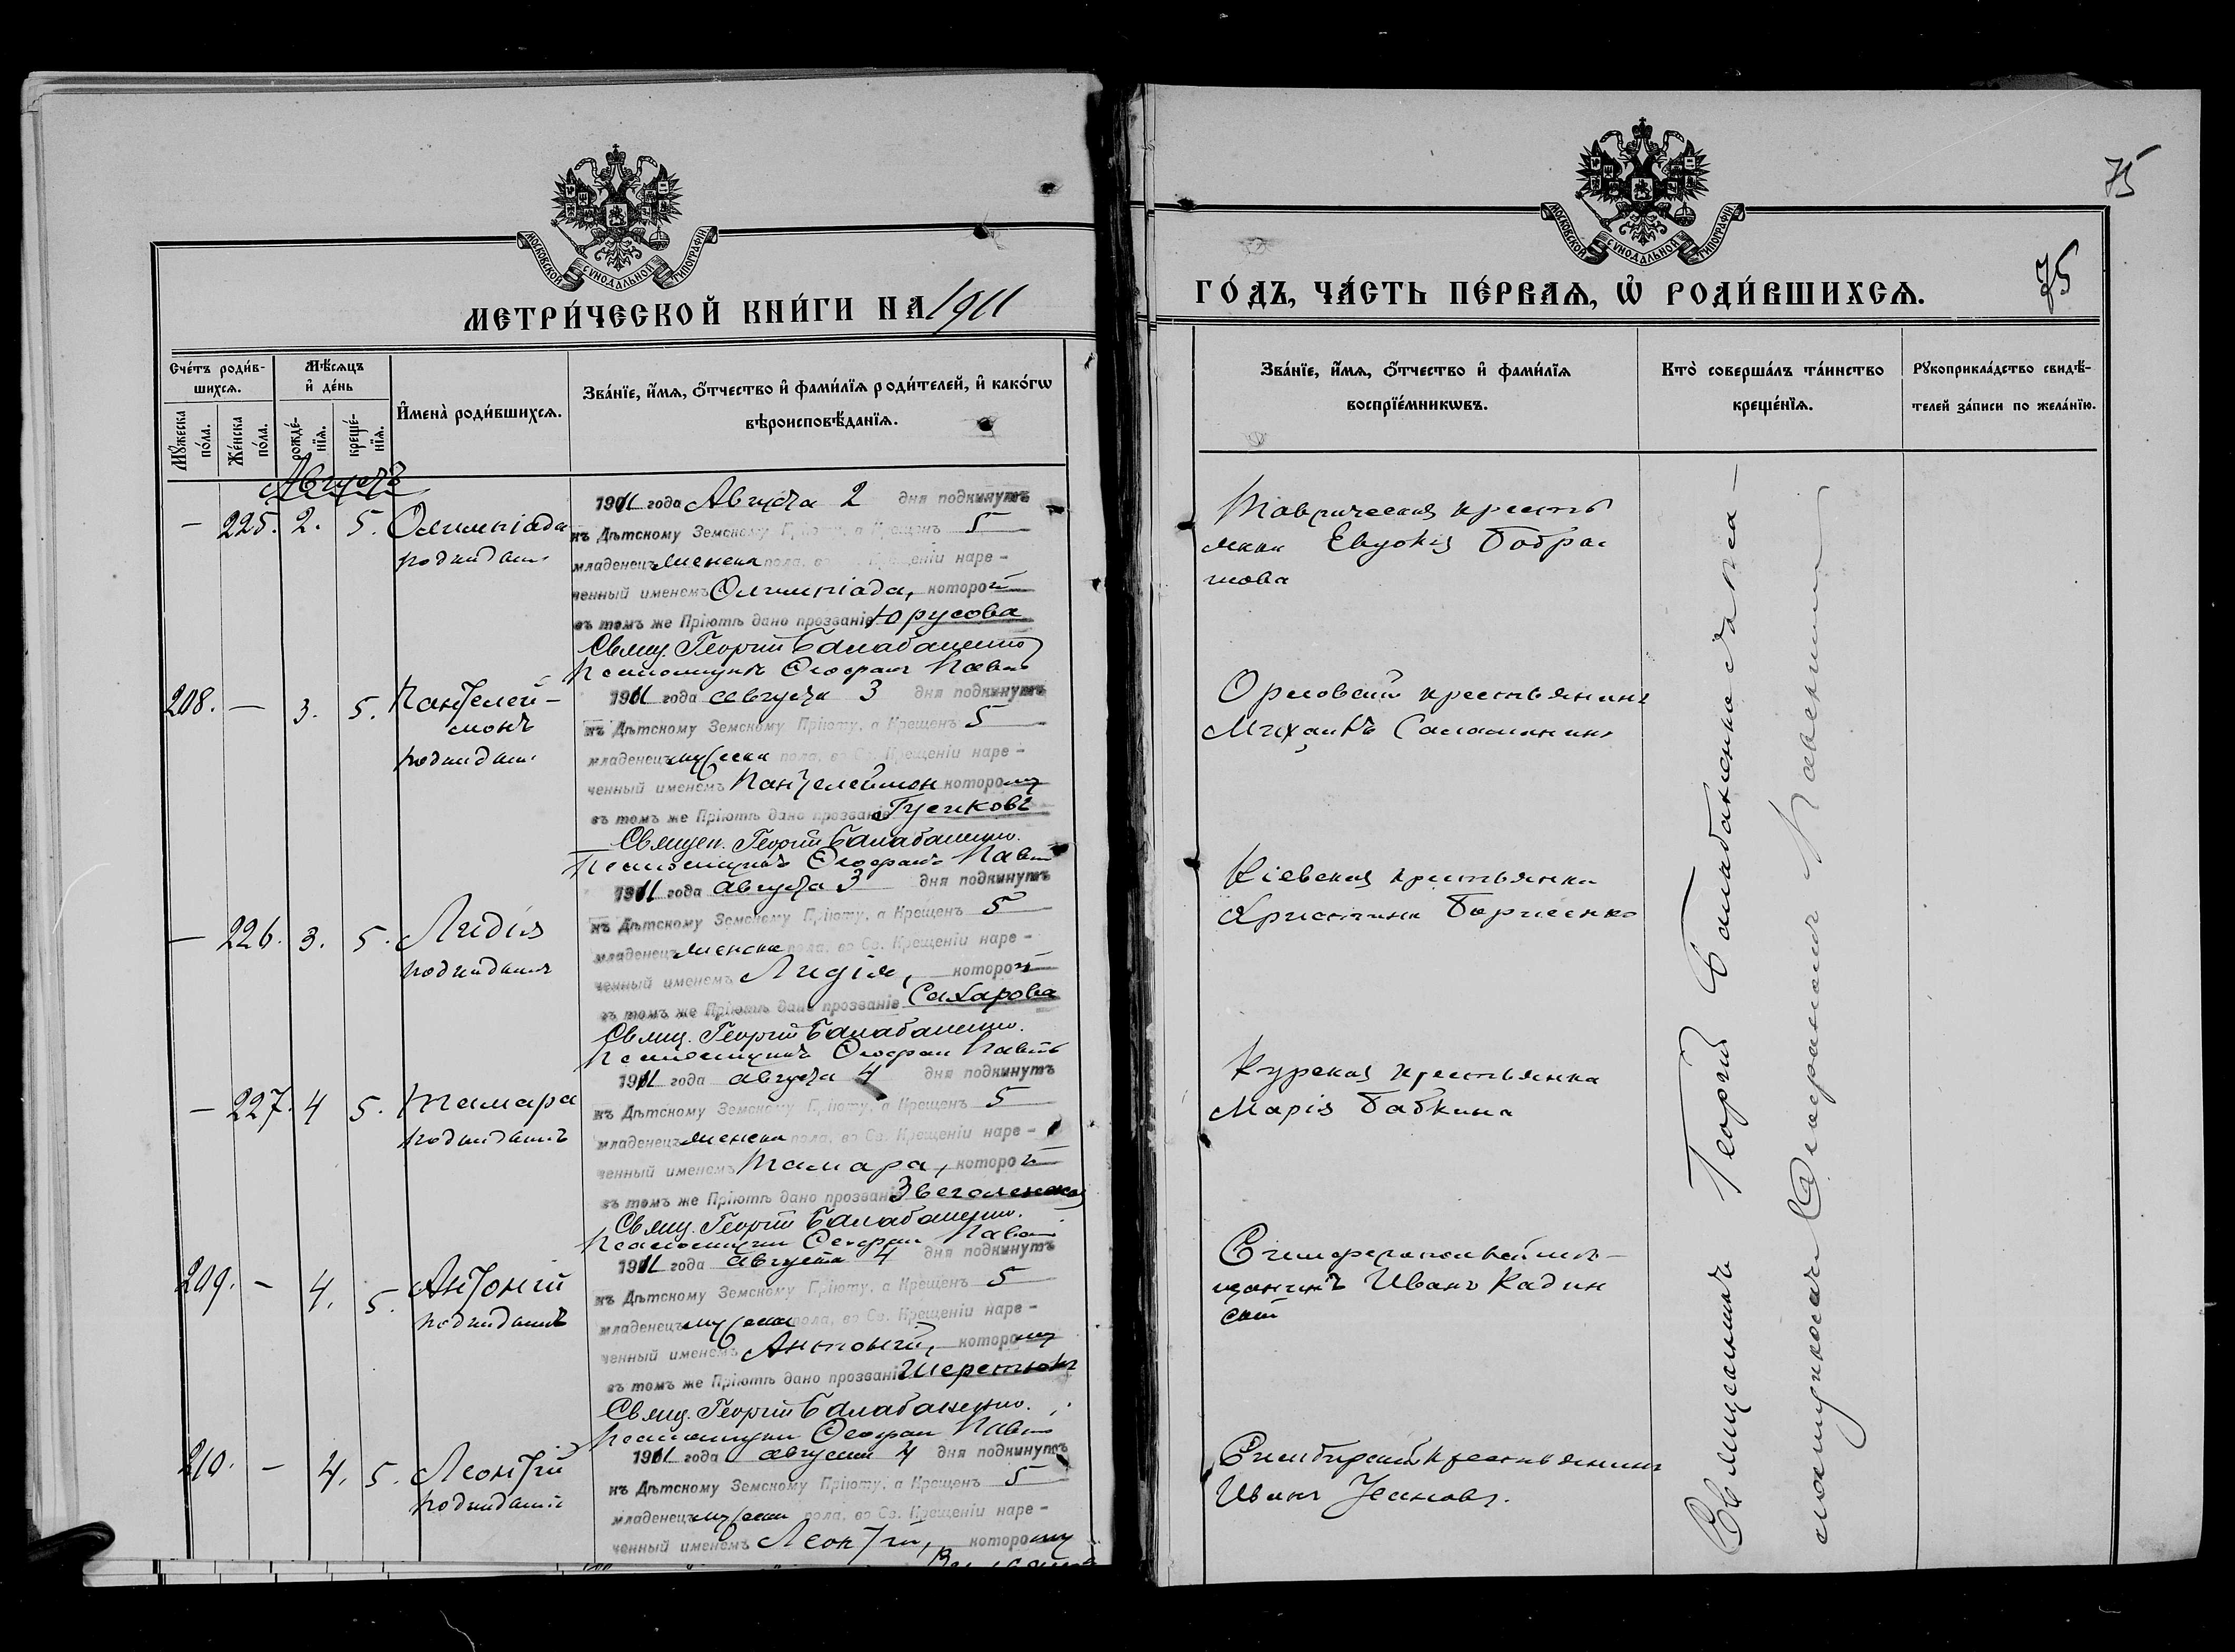 75
МОСКОВСКОЙ СѴНОДАЛЬНОЙ ТИПОГРАФІИ
МОСКОВСКОЙ СѴНОДАЛЬНОЙ ТИПОГРАФІИ
МЕТРИ́ЧЕСКОЙ КНИ́ГИ НА 1911
ГО́ДЪ, ЧА́СТЬ ПЕ́РВАЯ, Ѡ҆ РОДИ́ВШИХСЯ.
75
Счéтъ роди́в-
шихсѧ.
Мѣ́сѧцъ
и҆ де́нь
Мꙋ́жеска
по́ла.
Же́нска
по́ла.
рожде́-
нїѧ.
креще́-
нїѧ.
И҆мена̀ роди́вшихсѧ.
Зва́нїе, и҆́мѧ, ѻ҆́тчество и҆ фами́лїѧ роди́телей, и҆ како́гѡ
вѣроисповѣ́данїѧ.
Зва́нїе, и҆́мѧ, ѻ҆́тчество и҆ фами́лїѧ
воспрїе́мникѡвъ.
Кто̀ соверша́лъ та́инство
креще́нїѧ.
Рꙋкоприкла́дство свидѣ́-
телей за́писи по жела́нїю.
Августъ
— 225. 2. 5. Олимпіада
подкидыш
1911 года Августа 2 дня подкинутъ
къ Дѣтскому Земскому Пріюту, а Крещенъ 5
младенецъ женска пола, во Св. Крещеніи наре-
ченный именемъ Олимпіада, которой
въ томъ же Пріютѣ дано прозваніе Юрусова
Свящ. Георгій Балабаненко
Псаломщикъ Ѳеофан
Таврическая кресть
янка Евдокія Бобра
шова
208. — 3. 5. Пантелей-
монъ
подкидыш
1911 года августа 3 дня подкинутъ
къ Дѣтскому Земскому Пріюту, а Крещенъ 5
младенецъ мужеска пола, во Св. Крещеніи наре-
ченный именемъ Пантелеймон которому
въ томъ же Пріютѣ дано прозваніе Гусиковъ
Священ. Георгій Балабаненко.
Псаломщикъ Ѳеофанъ
Орловскій крестьянинъ
Михаилъ
— 226. 3. 5. Лидія
подкидышъ
1911 года августа 3 дня подкинутъ
къ Дѣтскому Земскому Пріюту, а Крещенъ 5
младенецъ женска пола, во Св. Крещеніи наре-
ченный именемъ Лидія, которой
въ томъ же Пріютѣ дано прозваніе Сахарова
Свящ. Георгій Балабаненко.
Псаломщикъ Ѳеофан
Кіевская крестьянка
Христина Борисенко
— 227. 4 5. Тамара
подкидышъ
1911 года августа 4 дня подкинутъ
къ Дѣтскому Земскому Пріюту, а Крещенъ 5
младенецъ женска пола, во Св. Крещеніи наре-
ченный именемъ Тамара, которой
въ томъ же Пріютѣ дано прозваніе
Свящ. Георгій Балабаненко.
Псаломщикъ Ѳеофан
Курская крестьянка
Марія Бабкина
209. — 4. 5. Антоній
подкидышъ
1911 года августа 4 дня подкинутъ
къ Дѣтскому Земскому Пріюту, а Крещенъ 5
младенецъ мужеска пола, во Св. Крещеніи наре-
ченный именемъ Антоній, которому
въ томъ же Пріютѣ дано прозваніе Шеретюкъ
Свящ. Георгій Балабаненко.
Псаломщикъ Ѳеофан
Симферопольскій мѣ-
щанинъ Иванъ Кадин
скій
210. — 4. 5. Леонтій
подкидышъ
1911 года августа 4 дня подкинутъ
къ Дѣтскому Земскому Пріюту, а Крещенъ 5
младенецъ мужеска пола, во Св. Крещеніи наре-
ченный именемъ Леонтій, которому
Симбирскій крестьянинъ
Иванъ
Священникъ Георгій Балабаненко съ
псаломщикомъ Ѳеофаномъ